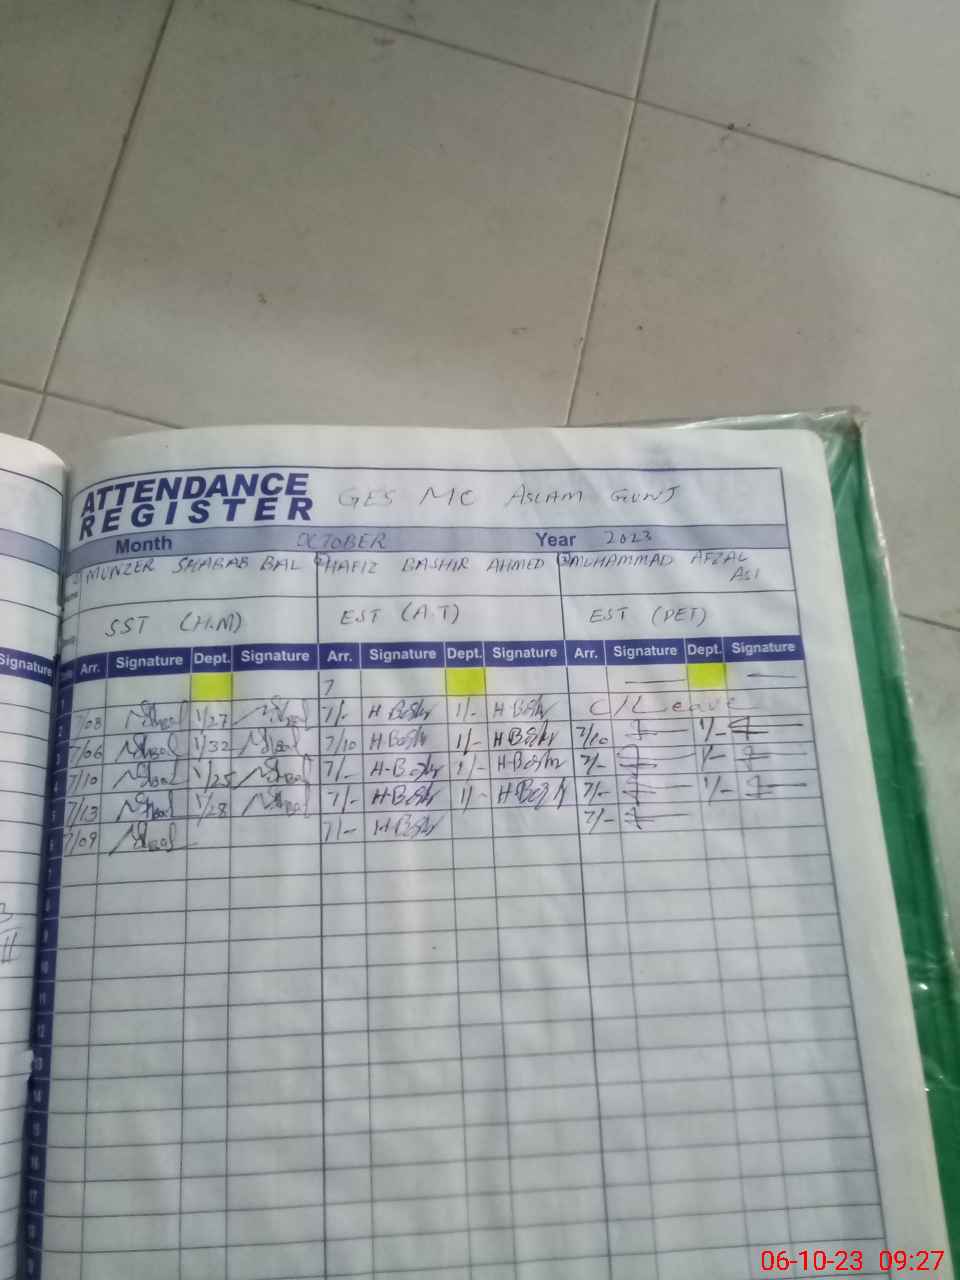 ATTENDANCE
REGISTER
GES MC ASLAM GUNJ
Month OCTOBER Year 2023
MUNZER BAL HAFIZ BASHIR AHMED MUHAMMAD AFZAL
SST (H.M) EST (A.T) EST (PET)
Signature Arr. Signature Dept. Signature Arr. Signature Dept. Signature Arr. Signature Dept. Signature
7
7/08 1/27 7/- H-Bashr 1/- H-Bashr C/Leave
7/06 1/32 7/10 H-Bashr 1/- H-Bashr 7/10 1/-
7/10 1/25 7/- H-Bashr 1/- H-Bashr 7/- 1/-
7/13 1/28 7/- H-Bashr 1/- H-Bashr 7/- 1/-
7/09 7/- H-Bashr 7/-
1
2
3
4
5
6
7
8
9
10
11
12
13
14
15
16
17
18
06-10-23 09:27